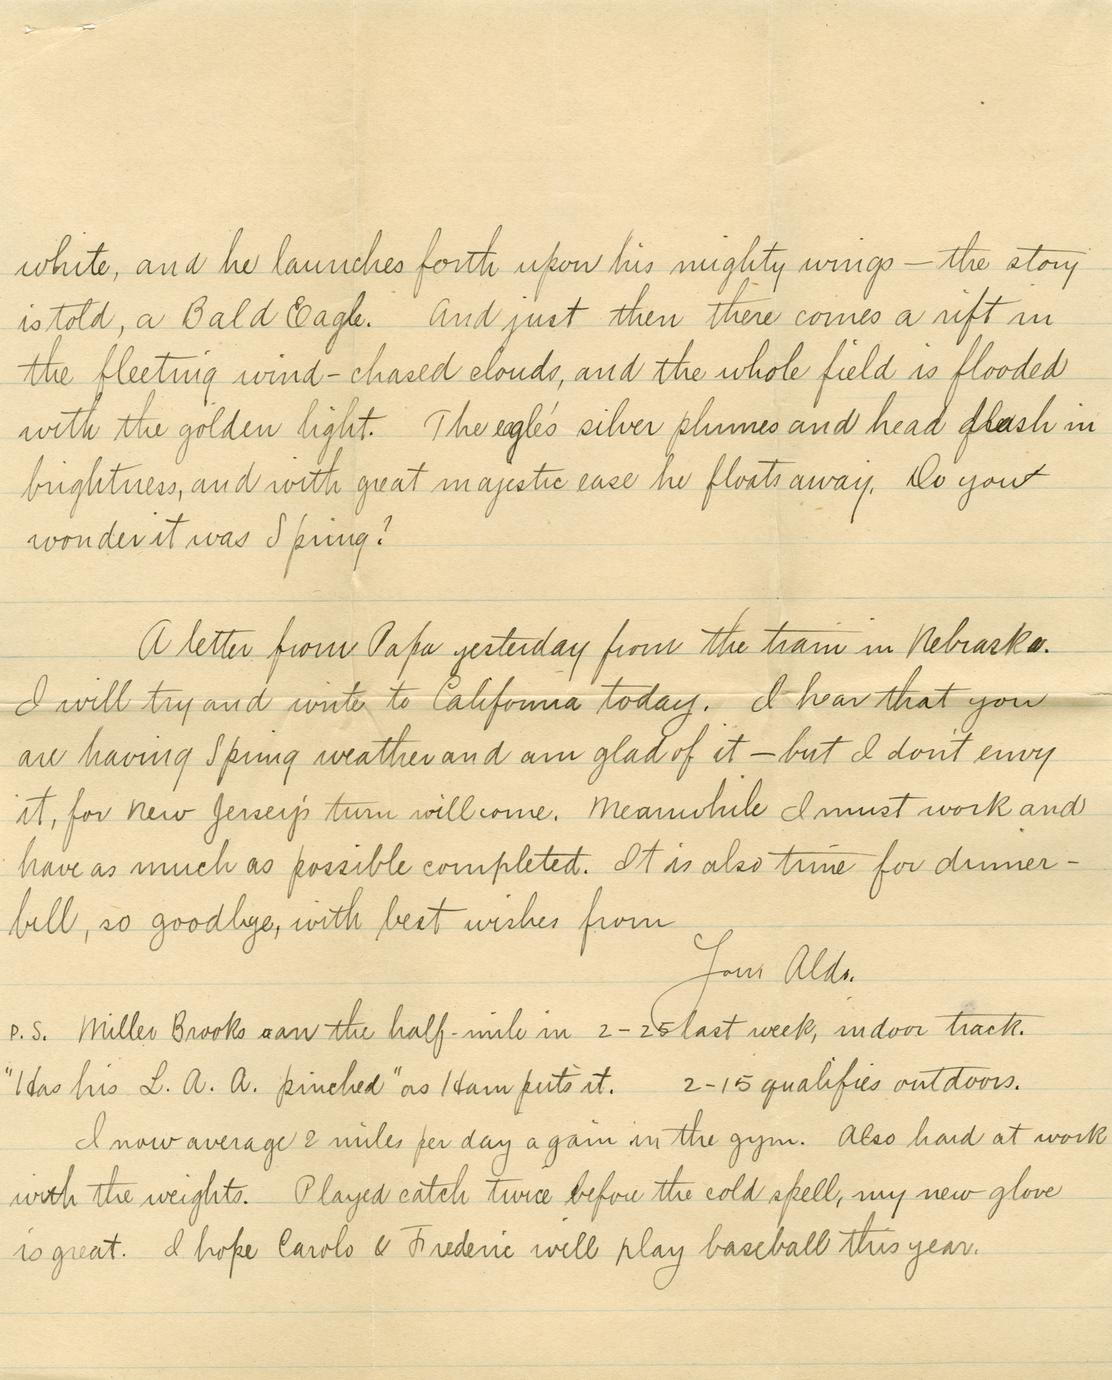 white, and he launches forth upon his mighty wings — the story
is told, a Bald Eagle. And just then there comes a rift in
the fleeting wind-chased clouds, and the whole field is flooded
with the golden light. The eagle's silver plumes and head flash in
brightness, and with great majestic ease he floats away. Do you
wonder it was Spring?
A letter from Papa yesterday from the train in Nebraska.
I will try and write to California today. I hear that you
are having Spring weather and am glad of it — but I don't envy
it, for New Jersey's turn will come. Meanwhile I must work and
have as much as possible completed. It is also time for dinner-
bell, so goodbye, with best wishes from
Your Aldo.
P.S. Miller Brooks ran the half-mile in 2-25 last week, indoor track.
"Has his L. A. A. pinched" as Ham puts it. 2-15 qualifies outdoors.
I now average 2 miles per day again in the gym. Also hard at work
with the weights. Played catch twice before the cold spell, my new glove
is great. I hope Carolo & Frederic will play baseball this year.